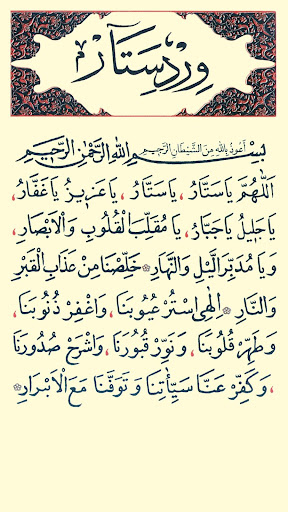 وِرْدِسَتَّارْ
اَعُوذُ بِاللّٰهِ مِنَ الشَّيْطَانِ الرَّجِيمِ
بِسْمِ اللّٰهِ الرَّحْمٰنِ الرَّحِيمِ
اَللّٰهُمَّ يَا سَتَّارُ، يَا سَتَّارُ، يَا عَزِيزُ يَا غَفَّارُ،
يَا جَلِيلُ يَا جَبَّارُ، يَا مُقَلِّبَ الْقُلُوبِ وَالْاَبْصَارِ،
وَيَا مُدَبِّرَ الَّيْلِ وَالنَّهَارِ، خَلِّصْنَا مِنْ عَذَابِ الْقَبْرِ
وَالنَّارِ ۞ اِلٰهِى اسْتُرْ عُيُوبَنَا، وَاغْفِرْ ذُنُوبَنَا،
وَطَهِّرْ قُلُوبَنَا، وَنَوِّرْ قُبُورَنَا، وَاشْرَحْ صُدُورَنَا
، وَكَفِّرْ عَنَّا سَيِّاٰتِنَا وَتَوَفَّنَا مَعَ الْاَبْرَارِ ۞